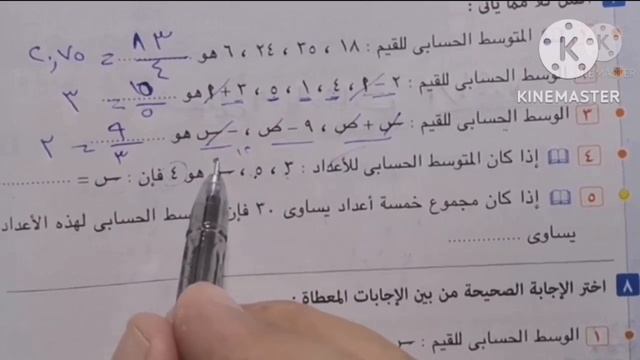 المتوسط الحسابى للقيم : ١٨ ، ٣٥ ، ٢٤ ، ٦ هو ٨٣ / ٤ = ٢٠,٧٥
الحسابى للقيم : ٢ – ٩ ، ٤ ، ١ ، ٥ ، ٣ + ٩ هو ١٥ / ٥ = ٣
٣ الوسط الحسابى للقيم : س + ص ، ٩ – ص ، – س هو ٩ / ٣ = ٣
٤ إذا كان المتوسط الحسابى للأعداد : ٣ ، ٥ ، هو ٤ فإن : س = ............
٥ إذا كان مجموع خمسة أعداد يساوى ٣٠ الحسابى لهذه الأعداد
يساوى ............
٨ اختر الإجابة الصحيحة من بين الإجابات المعطاة :
١ الوسط الحسابى للقيم :
KINEMASTER